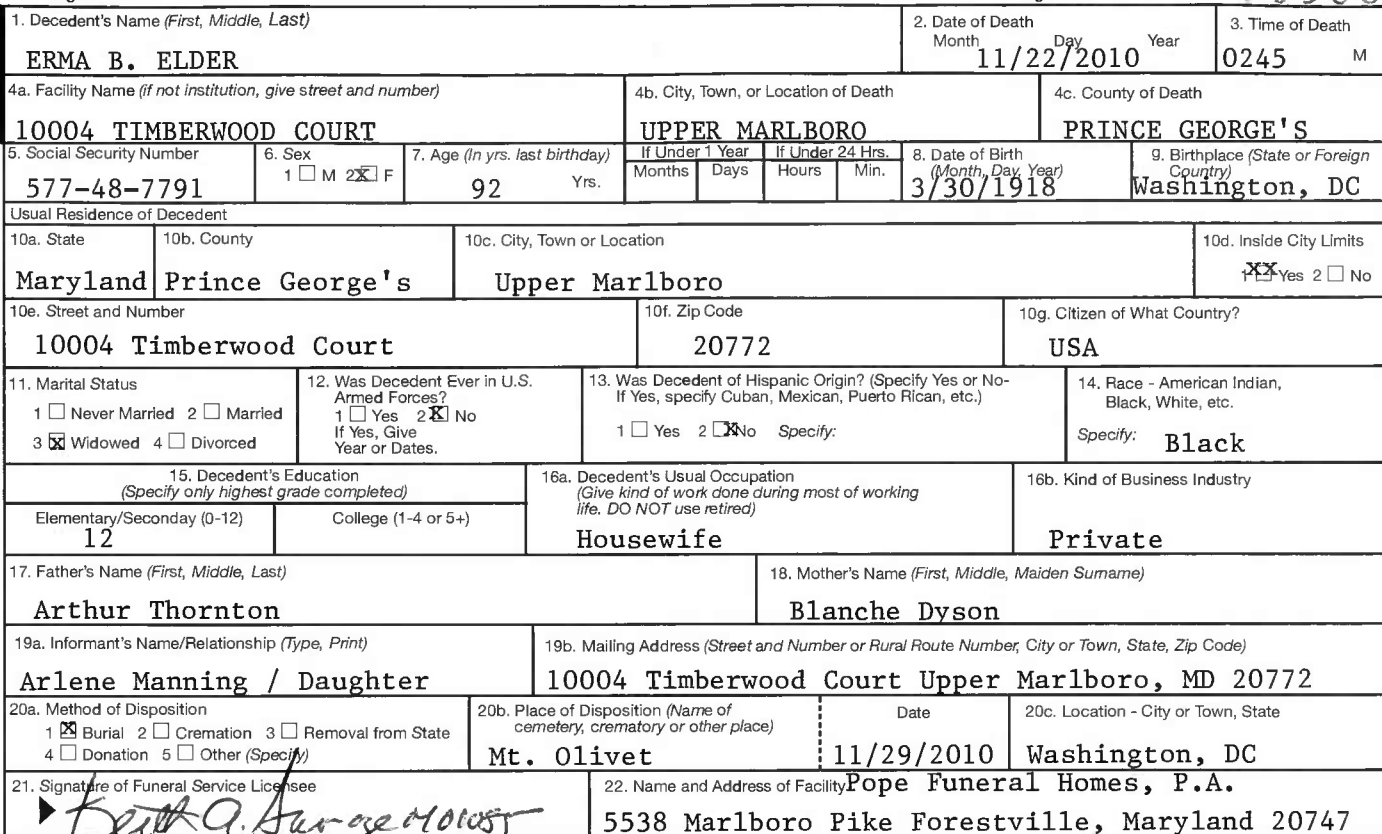 1. Decedent's Name (First, Middle, Last)
ERMA B. ELDER
2. Date of Death
Month Day Year
11/22/2010
3. Time of Death
0245 M
4a. Facility Name (if not institution, give street and number)
10004 TIMBERWOOD COURT
4b. City, Town, or Location of Death
UPPER MARLBORO
4c. County of Death
PRINCE GEORGE'S
5. Social Security Number
577-48-7791
6. Sex
1 ☐ M 2 ☒ F
7. Age (In yrs. last birthday)
92 Yrs.
If Under 1 Year
Months Days
If Under 24 Hrs.
Hours Min.
8. Date of Birth
(Month, Day, Year)
3/30/1918
9. Birthplace (State or Foreign
Country)
Washington, DC
Usual Residence of Decedent
10a. State
Maryland
10b. County
Prince George's
10c. City, Town or Location
Upper Marlboro
10d. Inside City Limits
1 XX Yes 2 ☐ No
10e. Street and Number
10004 Timberwood Court
10f. Zip Code
20772
10g. Citizen of What Country?
USA
11. Marital Status
1 ☐ Never Married 2 ☐ Married
3 ☒ Widowed 4 ☐ Divorced
12. Was Decedent Ever in U.S.
Armed Forces?
1 ☐ Yes 2 ☒ No
If Yes, Give
Year or Dates.
13. Was Decedent of Hispanic Origin? (Specify Yes or No-
If Yes, specify Cuban, Mexican, Puerto Rican, etc.)
1 ☐ Yes 2 ☒ No Specify:
14. Race - American Indian,
Black, White, etc.
Specify: Black
15. Decedent's Education
(Specify only highest grade completed)
Elementary/Seconday (0-12)
12
College (1-4 or 5+)
16a. Decedent's Usual Occupation
(Give kind of work done during most of working
life. DO NOT use retired)
Housewife
16b. Kind of Business Industry
Private
17. Father's Name (First, Middle, Last)
Arthur Thornton
18. Mother's Name (First, Middle, Maiden Surname)
Blanche Dyson
19a. Informant's Name/Relationship (Type, Print)
Arlene Manning / Daughter
19b. Mailing Address (Street and Number or Rural Route Number, City or Town, State, Zip Code)
10004 Timberwood Court Upper Marlboro, MD 20772
20a. Method of Disposition
1 ☒ Burial 2 ☐ Cremation 3 ☐ Removal from State
4 ☐ Donation 5 ☐ Other (Specify)
20b. Place of Disposition (Name of
cemetery, crematory or other place)
Mt. Olivet
Date
11/29/2010
20c. Location - City or Town, State
Washington, DC
21. Signature of Funeral Service Licensee
22. Name and Address of Facility Pope Funeral Homes, P.A.
5538 Marlboro Pike Forestville, Maryland 20747